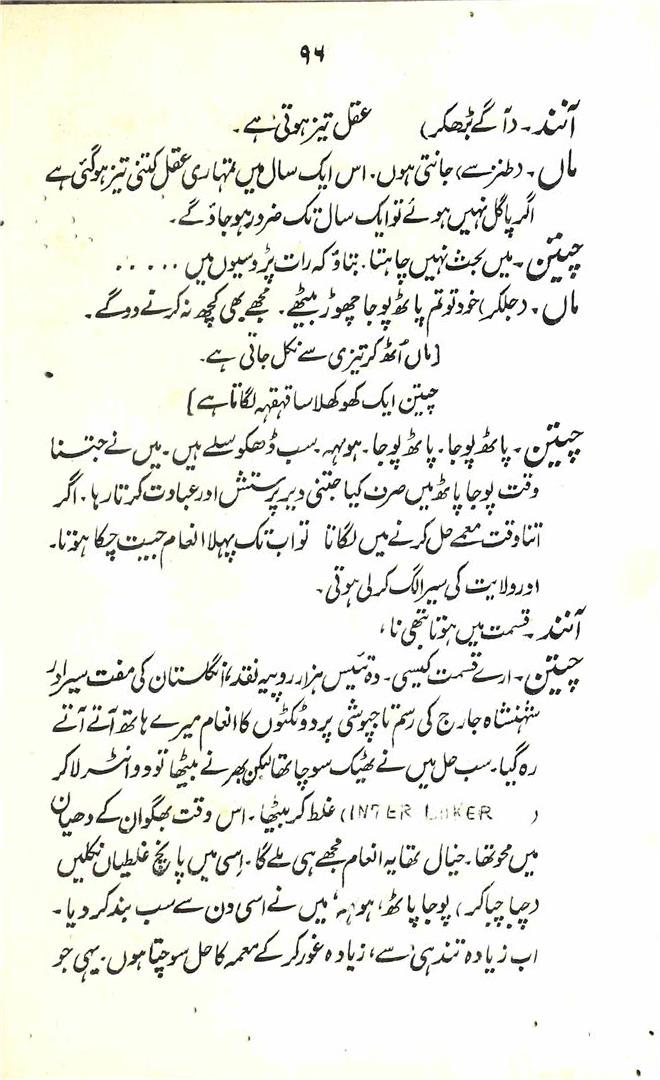 ۹۶
آنند۔ (آگے بڑھکر) عقل تیز ہوتی ہے۔
ماں۔ (طنز سے) جانتی ہوں۔ اس ایک سال میں تمہاری عقل کتنی تیز ہوگئی ہے
اگر پاگل نہیں ہوئے تو ایک سال تک ضرور ہو جاؤ گے۔
چیتن۔ میں بحث نہیں چاہتا۔ بتاؤ کہ رات پڑوسیوں میں .....
ماں۔ (جلکر) خود تو تم پاٹھ پوجا چھوڑ بیٹھے۔ مجھے بھی کچھ نہ کرنے دو گے۔
[ماں اُٹھ کر تیزی سے نکل جاتی ہے۔
چیتن ایک کھوکھلا سا قہقہہ لگاتا ہے]
چیتن۔ پاٹھ پوجا۔ پاٹھ پوجا۔ ہونہہ۔ سب ڈھکوسلے ہیں۔ میں نے جتنا
وقت پوجا پاٹھ میں صرف کیا جتنی دیر پرستش اور عبادت کرتا رہا۔ اگر
اتنا وقت معمے حل کرنے میں لگاتا تو اب تک پہلا انعام جیت چکا ہوتا۔
اور ولایت کی سیر الگ کر لی ہوتی۔
آنند۔ قسمت میں ہوتا تبھی نا،
چیتن۔ ارے قسمت کیسی۔ وہ تیئس ہزار روپیہ نقد، انگلستان کی مفت سیر اور
شہنشاہ جارج کی رسم تاجپوشی پر دو ٹکٹوں کا انعام میرے ہاتھ آتے آتے
رہ گیا۔ سب حل میں نے ٹھیک سوچا تھا لیکن بھرنے بیٹھا تو دو انٹر لاکر
(INTER LOKER) غلط کر بیٹھا۔ اس وقت بھگوان کے دھیان
میں محو تھا۔ خیال تھا یہ انعام مجھے ہی ملے گا۔ اِسی میں پانچ غلطیاں نکلیں
(چبا چبا کر) پوجا پاٹھ، ہونہہ، میں نے اسی دن سے سب بند کر دیا۔
اب زیادہ تندہی سے، زیادہ غور کر کے معمہ کا حل سوچتا ہوں۔ یہی جو